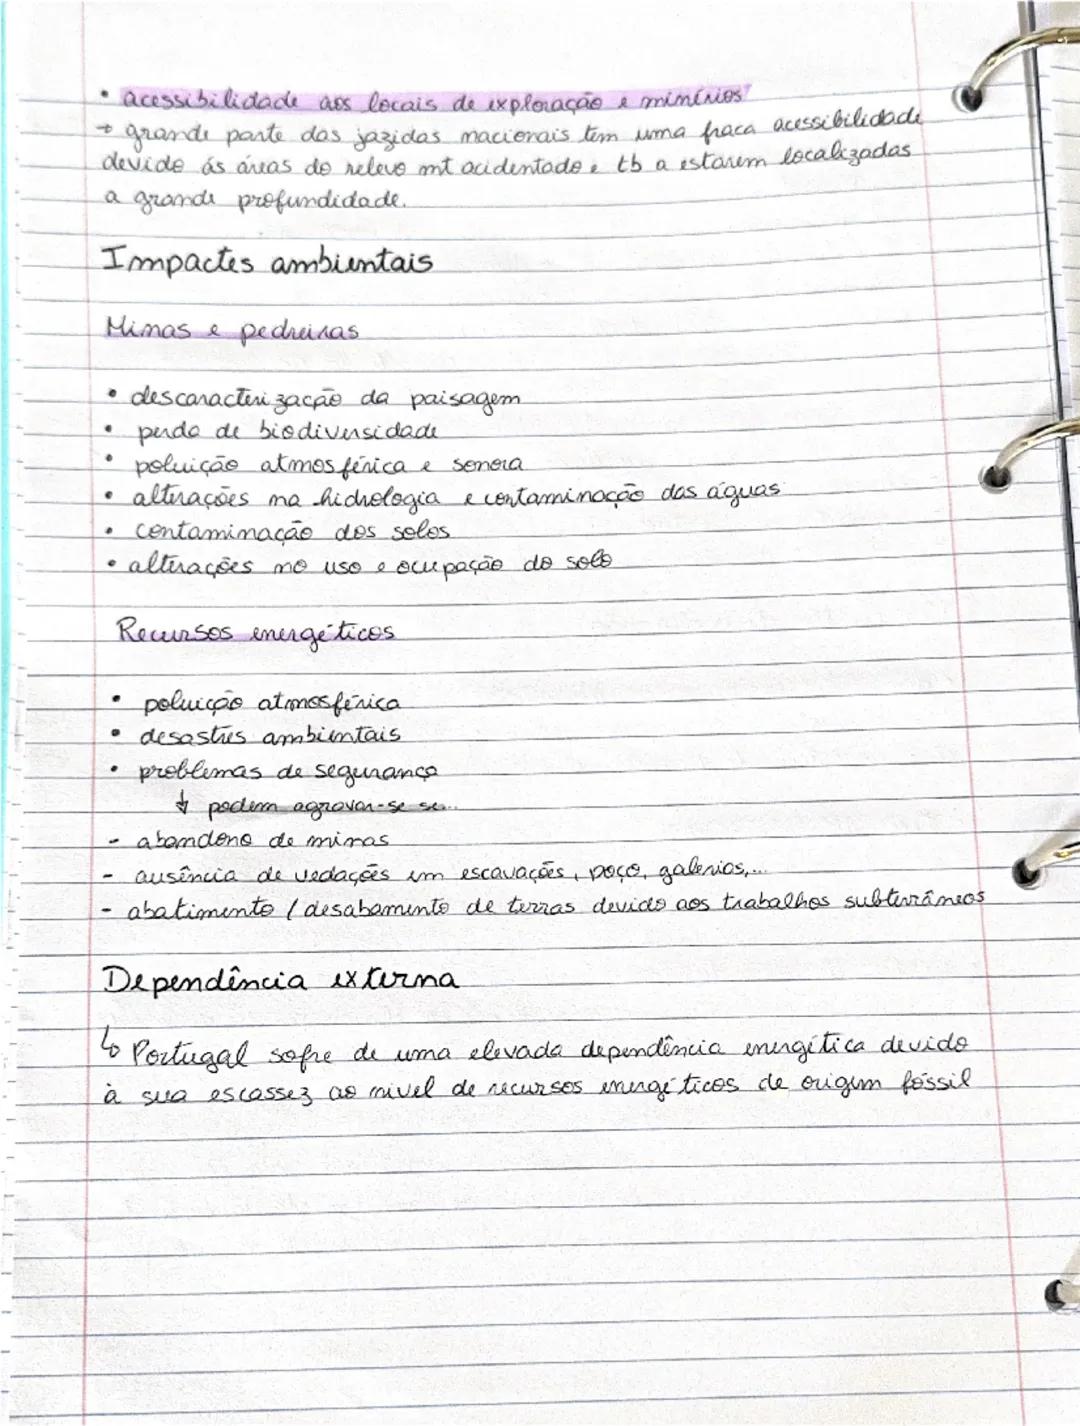 • acessibilidade aos locais de exploração e minérios
→ grande parte das jazidas nacionais tem uma fraca acessibilidade
devido ás áreas do relevo mt acidentado e tb a estarem localizadas
a grande profundidade.
Impactes ambientais
Minas e pedreiras
• descaracterização da paisagem
• perda de biodiversidade
• poluição atmosférica e sonora
• alterações na hidrologia e contaminação das águas
• contaminação dos solos
• alterações no uso e ocupação do solo
Recursos energéticos
• poluição atmosférica
• desastres ambientais
• problemas de segurança
↓ podem agravar-se se...
- abandono de minas
- ausência de vedações em escavações, poço, galerias,...
- abatimento / desabamento de terras devido aos trabalhos subterrâneos
Dependência externa
↳ Portugal sofre de uma elevada dependência energética devido
à sua escassez ao nivel de recursos energéticos de origem fóssil